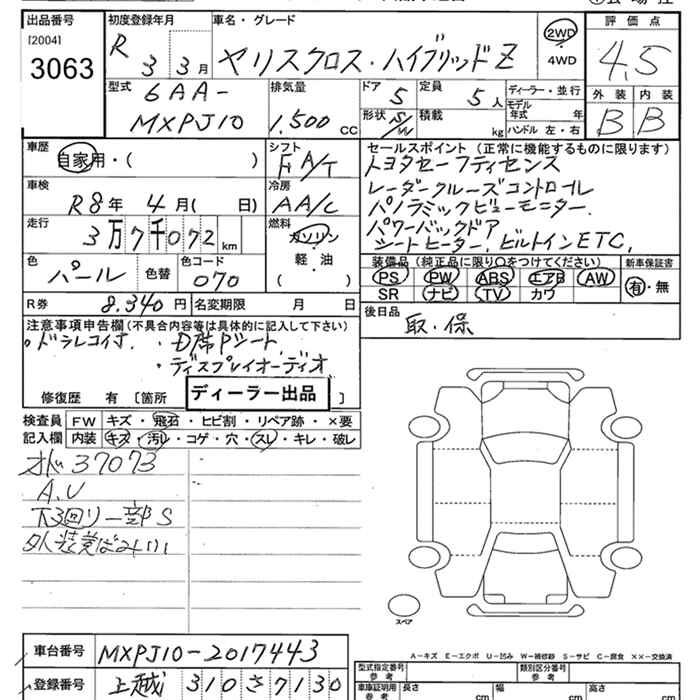 出品番号 初度登録年月 車名・グレード 評価点
[2004]
3063
R 3 3月
ヤリスクロス・ハイブリッドZ
2WD
4WD
4.5
型式 排気量 ドア 定員 ディーラー・並行 外装 内装
6AA-
MXPJ10
1.500 cc
5
5人
モデル年式 年
形状 S/W 積載 kg ハンドル 左・右
B B
車歴 シフト セールスポイント(正常に機能するものに限ります)
自家用・( )
FA/T
トヨタセーフティセンス
レーダークルーズコントロール
パノラミックビューモニター.
パワーバックドア
シートヒーター, ビルトインETC,
車検 冷房
R8年 4月( 日)
AA/C
走行 燃料
3万7千072km
ガソリン
軽・油
( )
色 パール 色替 色コード 070
装備品(純正品に限り○をつけてください) 新車保証書
PS PW ABS エアB AW 有・無
SR ナビ TV カワ
R券 8.340円 名変期限 月 日
後日品 取・保
注意事項申告欄(不具合内容等は具体的に記入して下さい)
・ドラレコイオ. ・D席Pシート
・ディスプレイオーディオ
修復歴 有 [箇所 ]
ディーラー出品
検査員記入欄
FW キズ・飛石・ヒビ割・リペア跡・×要
内装 キズ・汚レ・コゲ・穴・スレ・キレ・破レ
オド 37073
A.U
下回り一部S
外装黄ばみいい
スペア
A－キズ E－エクボ U－凹み W－補修跡 S－サビ C－腐食 ××－交換済
車台番号 MXPJ10-2017443
登録番号 上越 310 さ 7130
型式指定番号 参考 類別区分番号 参考
車庫証明用参考 長さ cm 幅 cm 高さ cm